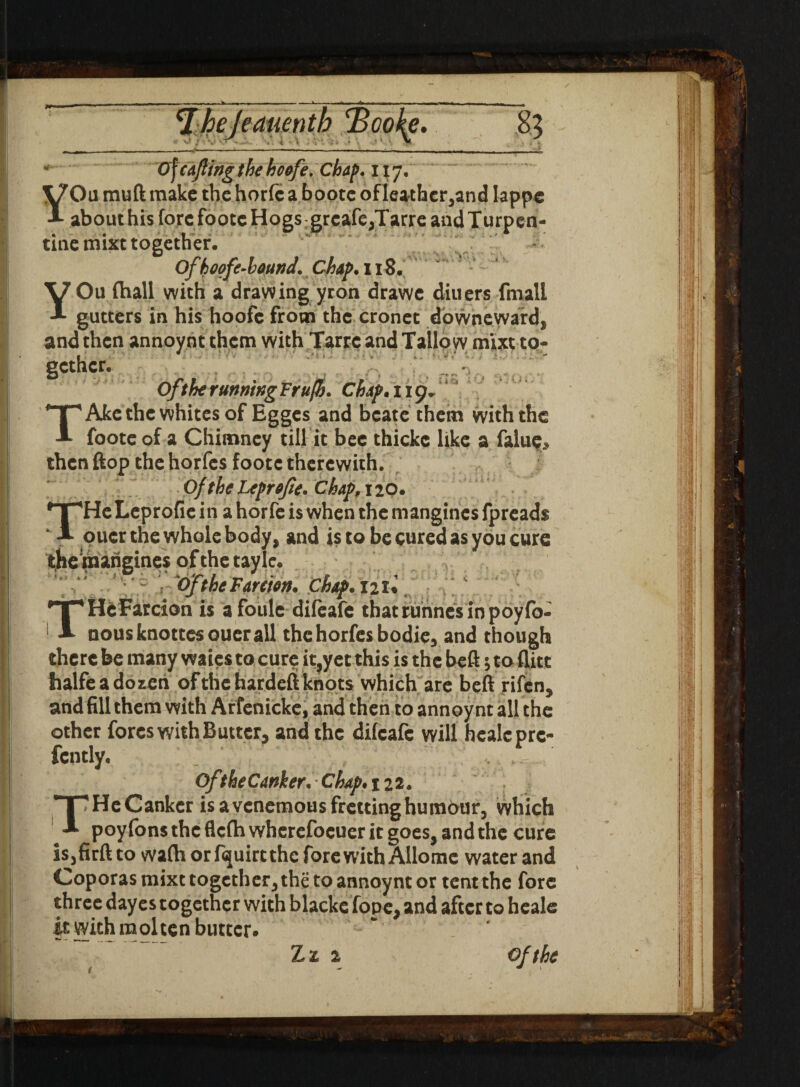 The seauenth Booke. 83
Of casting the hoofe. Chap. 117.
YOu must make the horse a boote of leather, and lappe
about his sore foote Hogs-grease, Tarre and Turpen-
tine mixt together.
Of hoofe-bound. Chap. 118.
YOu shall with a drawing yron drawe diuers small
gutters in his hoofe from the cronet downeward,
and then annoynt them with Tarre and Tallow mixt to-
gether.
Of the running Frush. Chap. 119.
TAke the whites of Egges and beate them with the
foote of a Chimney till it bee thicke like a salue,
then stop the horses foote therewith.
Of the Leprosie. Chap, 120.
THe Leprosie in a horse is when the mangines spreads
ouer the whole body, and is to be cured as you cure
the mangines of the tayle.
Of the Farcion. Chap. 121.
THe Farcion is a foule disease that runnes in poyso-
nous knottes ouer all the horses bodie, and though
there be many waies to cure it, yet this is the best; to slitt
halfe a dozen of the hardest knots which are best risen,
and fill them with Arsenicke, and then to annoynt all the
other sores with Butter, and the disease will heale pre-
sently.
Of the Canker. Chap. 122.
THe Canker is a venemous fretting humour, which
poysons the flesh wheresoeuer it goes, and the cure
is, first to wash or squirt the sore with Allome water and
Coporas mixt together, the to annoynt or tent the sore
three dayes together with blacke sope, and after to heale
it with molten butter.
Zz 2 Of the